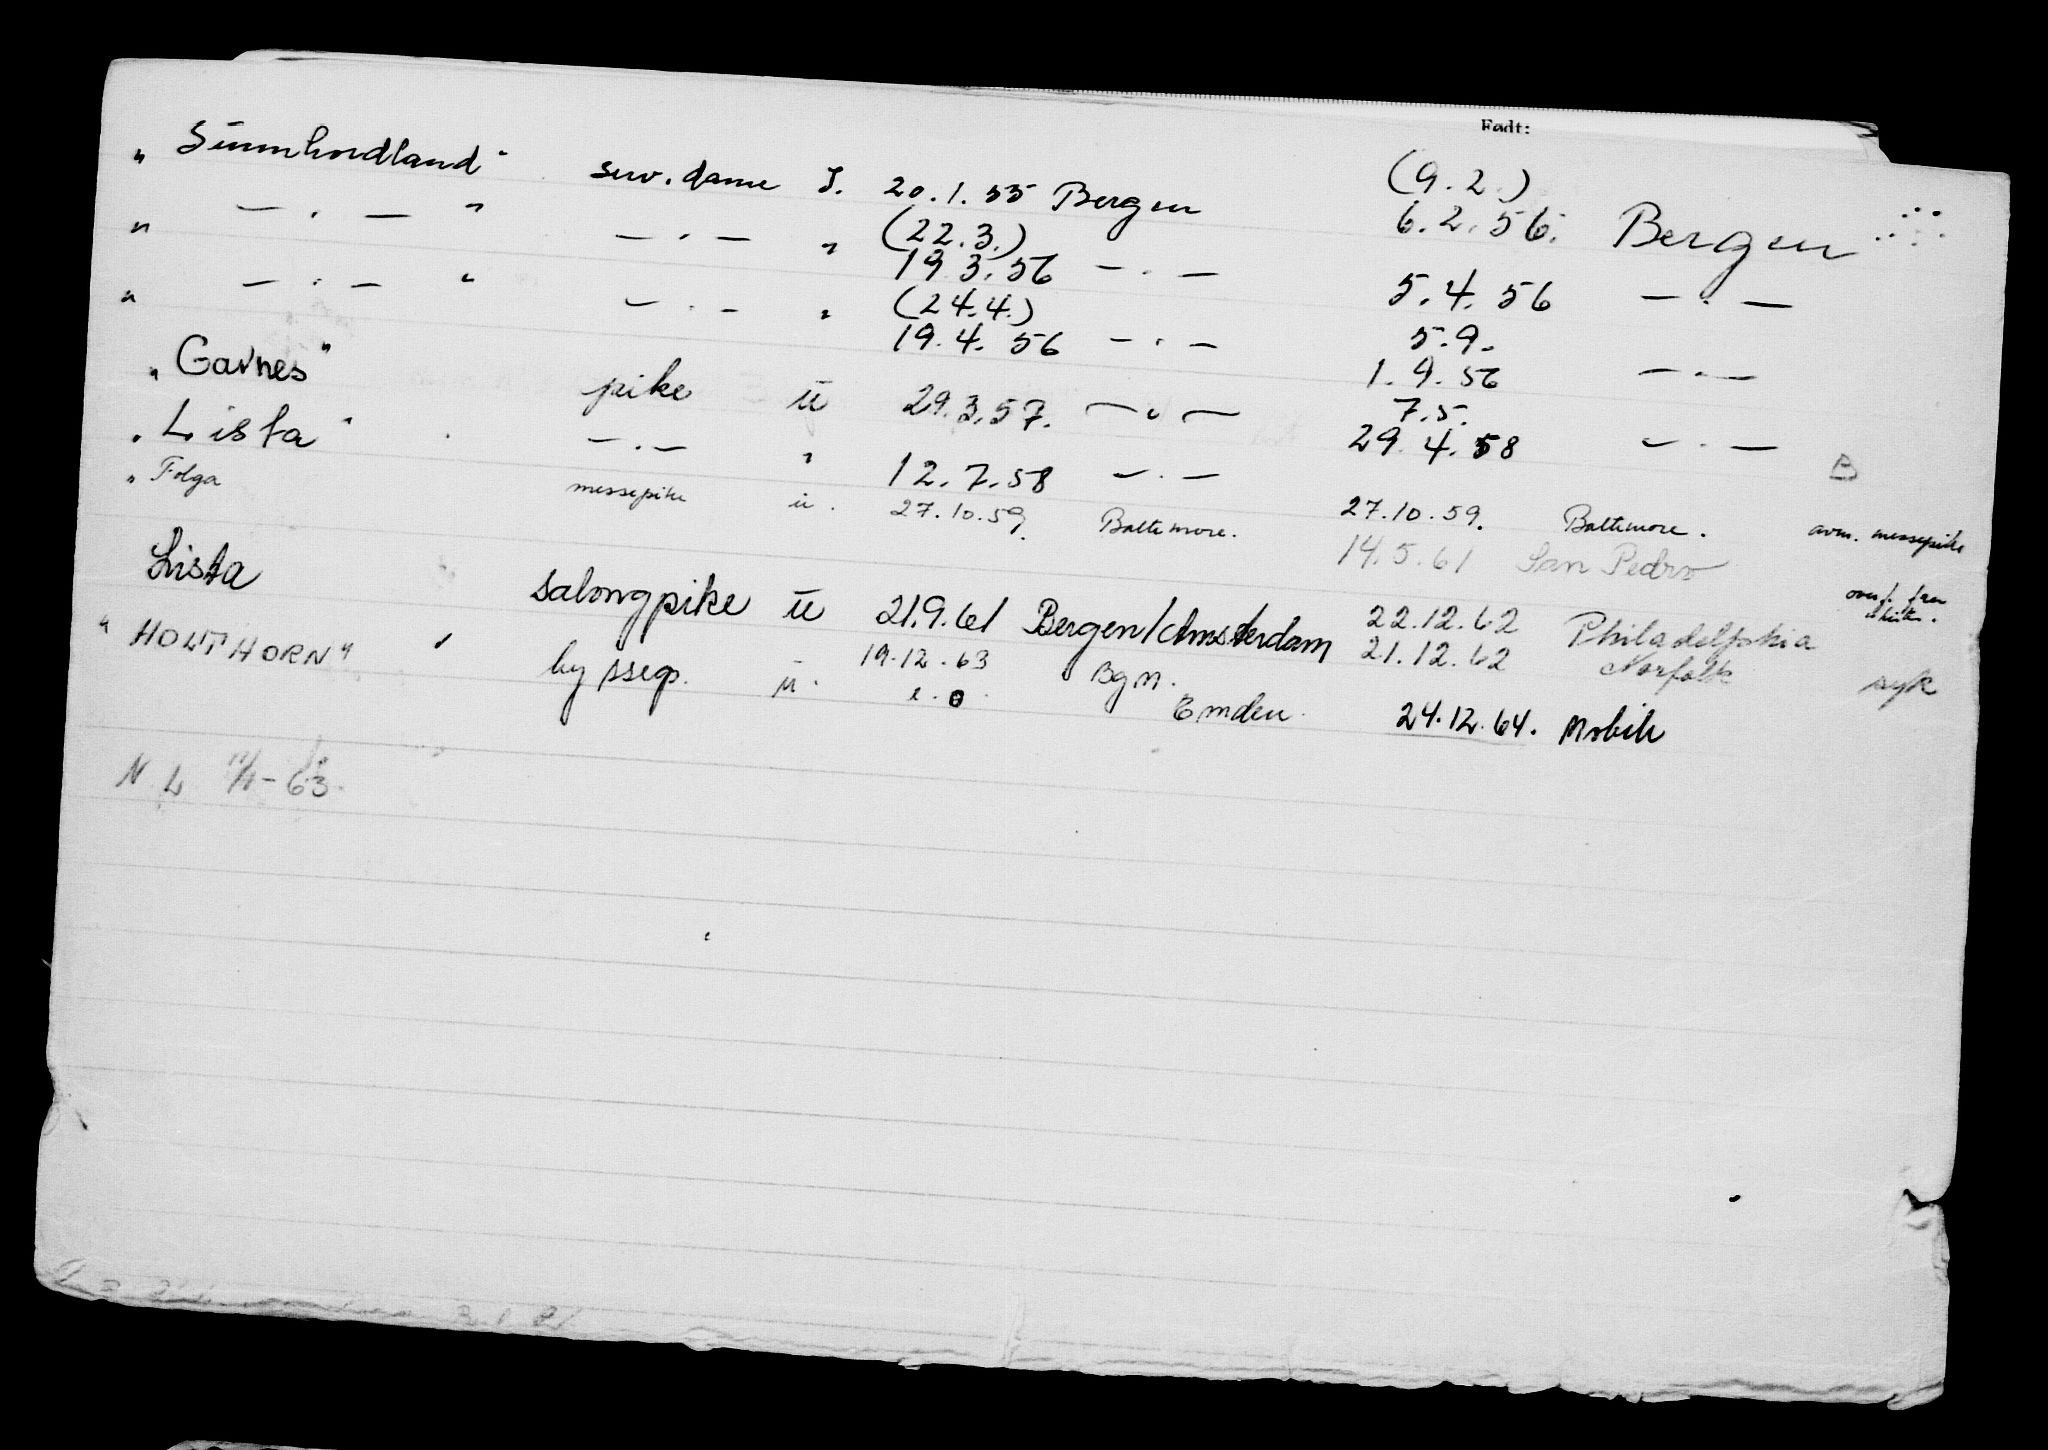 Født:
(9.2.)
" Sunnhordland " serv. dame I. 20.1.55 Bergen 6.2.56. Bergen
(22.3.)
" — . — " — . — " 19.3.56 — . — 5.4.56 — . —
(24.4.) 5.9.
" — . — " — . — " 19.4.56 — . — 1.9.56 — . —
7.5.
" Garnes " pike u 29.3.57. — " — 29.4.58 — . —
" Lista " — . — " 12.7.58 — . — B
" Folga messepike u. 27.10.59. Baltimore. 27.10.59. Baltimore. avm. messepike
14.5.61 San Pedro
22.12.62 Philadelphia
Lista salongpike u 21.9.61 Bergen/Amsterdam 21.12.62 Norfolk syk
" HOLTHORN " byssep. u. 19.12.63 Bgn.
Emden. 24.12.64. Mobile
N.L. - 63.